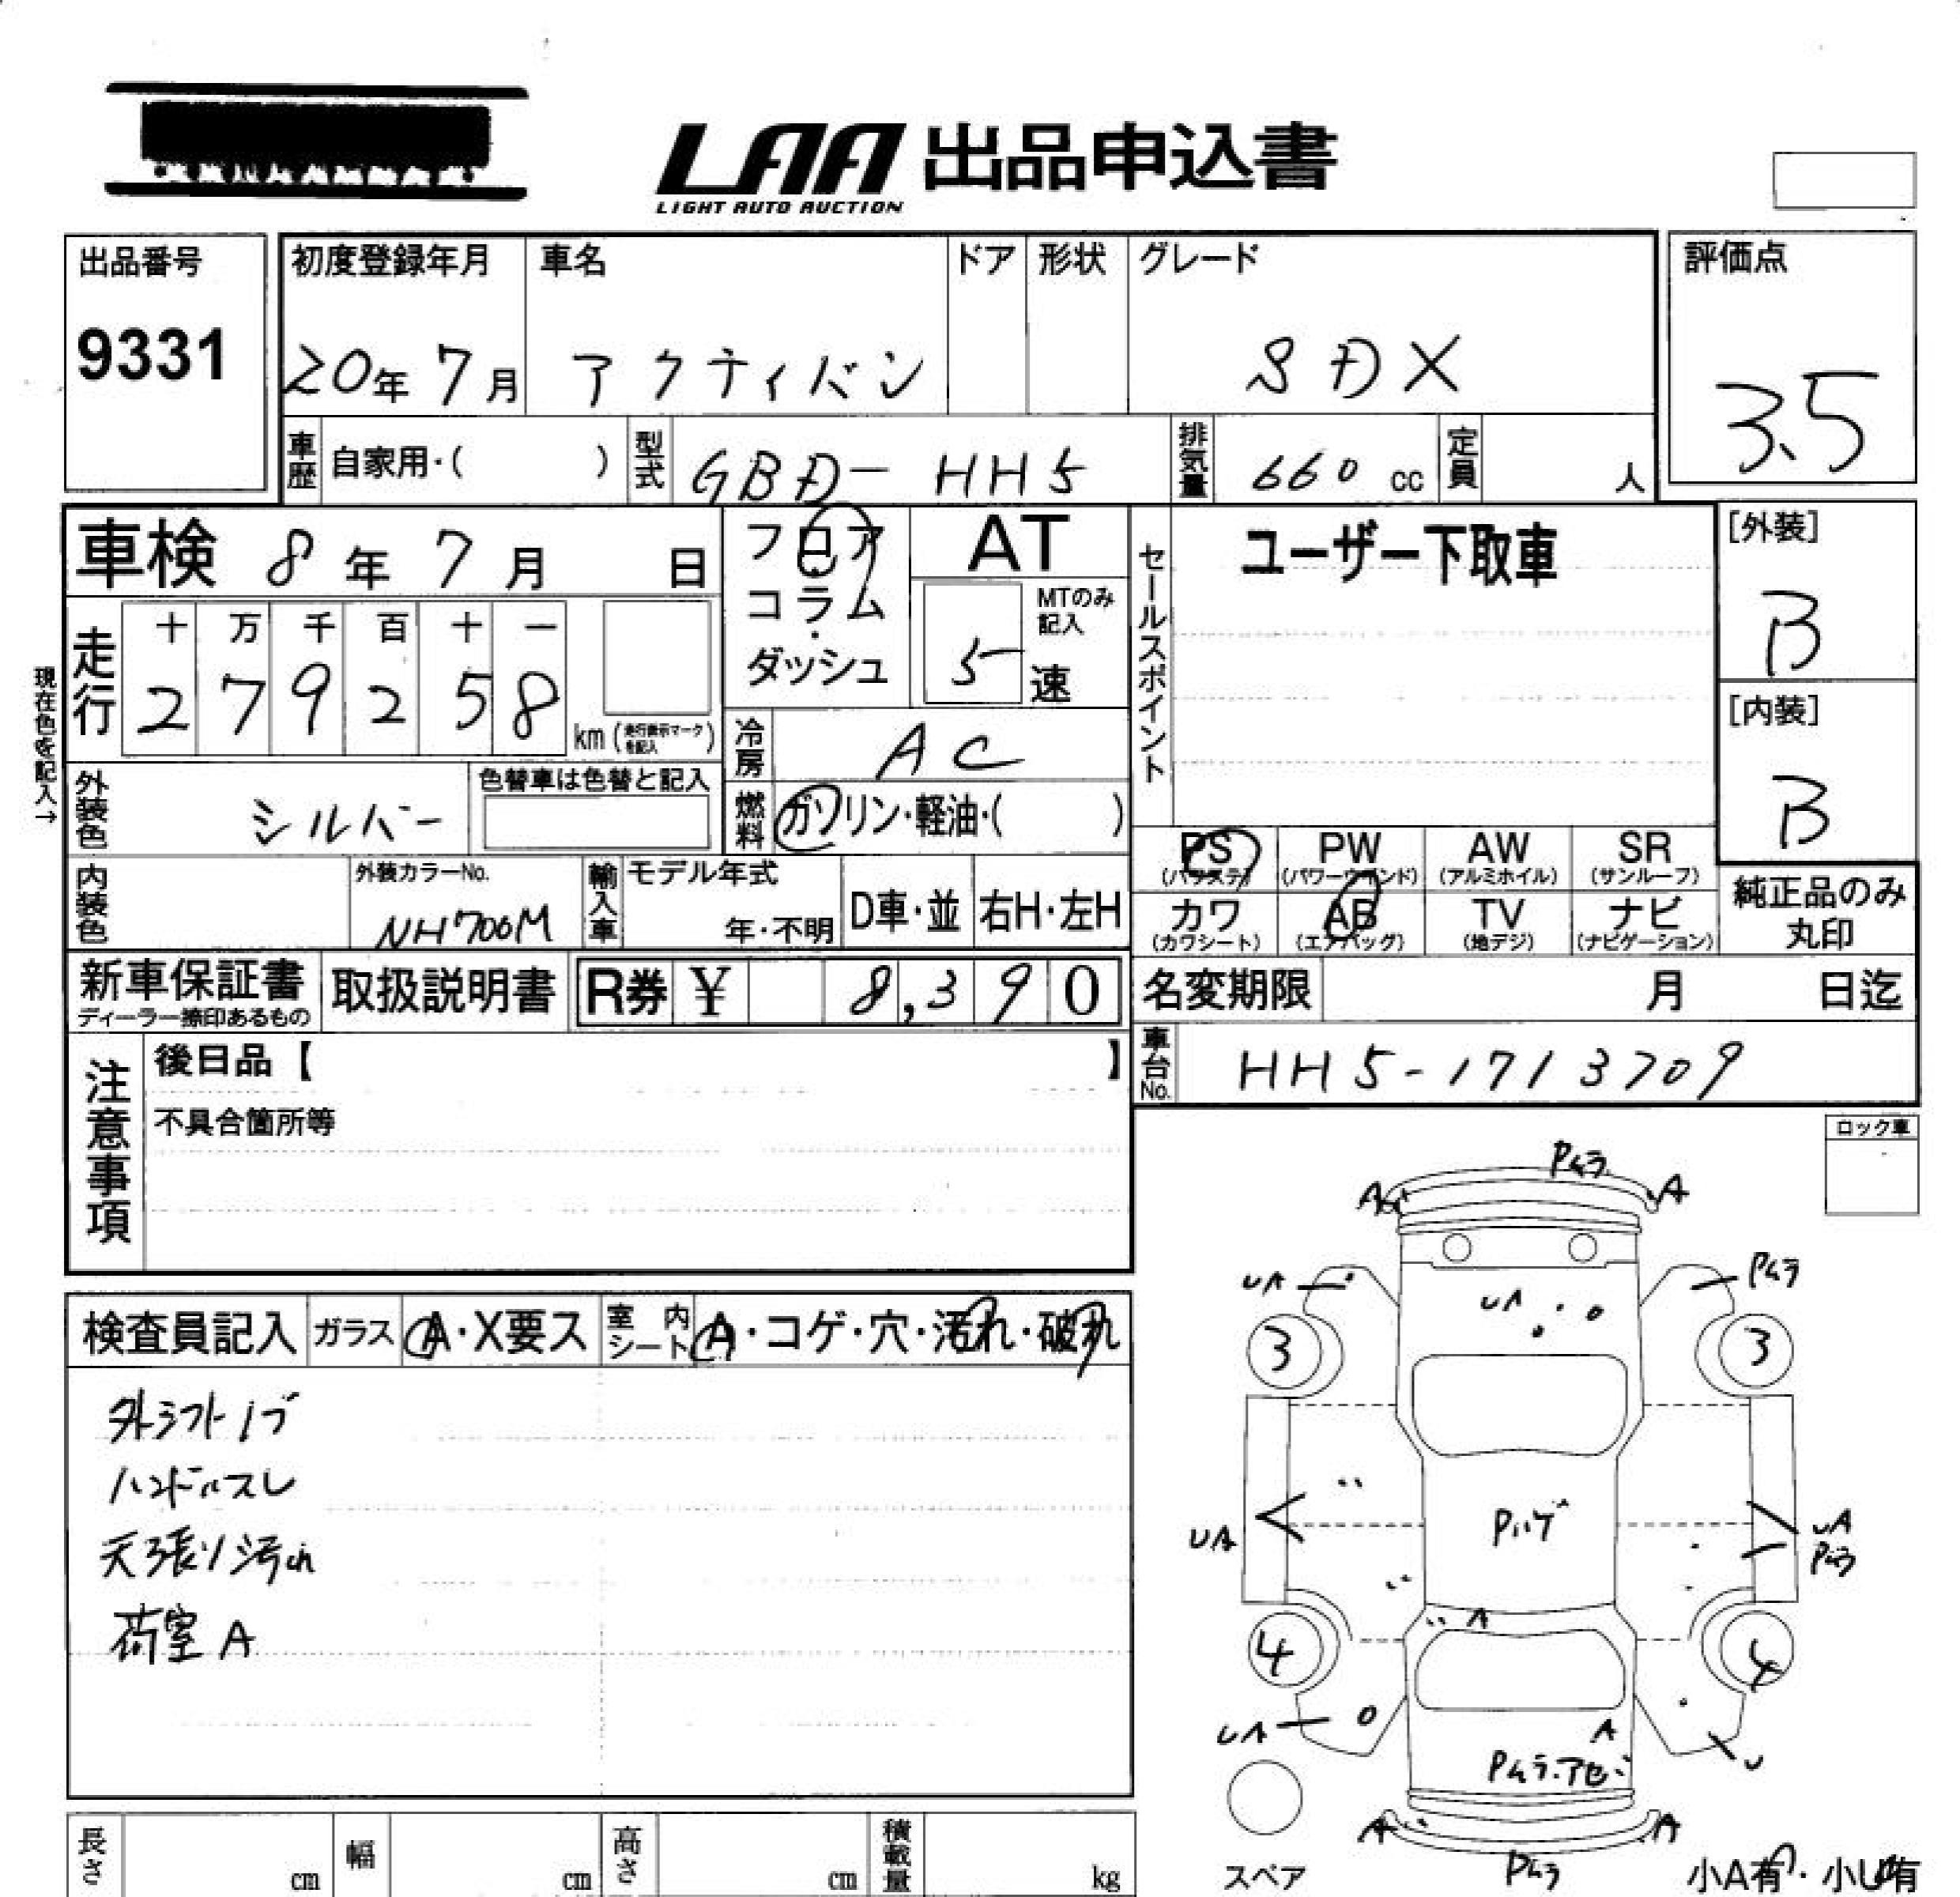 LAA 出品申込書
LIGHT AUTO AUCTION
出品番号
9331
初度登録年月 車名 ドア 形状 グレード
20年 7月 アクティバン SDX
評価点
3.5
車歴 自家用・( ) 型式 GBD- HH5 排気量 660 cc 定員 人
車検 8年 7月 日
フロア・コラム・ダッシュ
AT
MTのみ記入
5 速
セールスポイント
ユーザー下取車
[外装]
B
[内装]
B
現在色を記入→
走行
十 万 千 百 十 一
2 7 9 2 5 8
km (走行表示マークを記入)
冷房 AC
外装色 シルバー 色替車は色替と記入
燃料 ガソリン・軽油・( )
PS (パワステ) PW (パワーウインド) AW (アルミホイル) SR (サンルーフ)
カワ (カワシート) AB (エアバッグ) TV (地デジ) ナビ (ナビゲーション)
純正品のみ
丸印
内装色 外装カラーNo. NH700M 輸入車 モデル年式 年・不明 D車・並 右H・左H
新車保証書 ディーラー捺印あるもの 取扱説明書 R券 ¥ 8,390
名変期限 月 日迄
車台No. HH5-1713709
注意事項
後日品【 】
不具合箇所等
ロック車
検査員記入 ガラス A・X要ス 室内シート A・コゲ・穴・汚れ・破れ
外シフトノブ
ハンドルスレ
天張り汚れ
荷室A
Pムラ
A A
UA Pムラ
UA
3 3
Pハゲ
UA UA
Pムラ
A
4 4
UA U
A
Pムラ.アセ
A A
Pムラ
スペア
小A有・小U有
長さ cm 幅 cm 高さ cm 積載量 kg